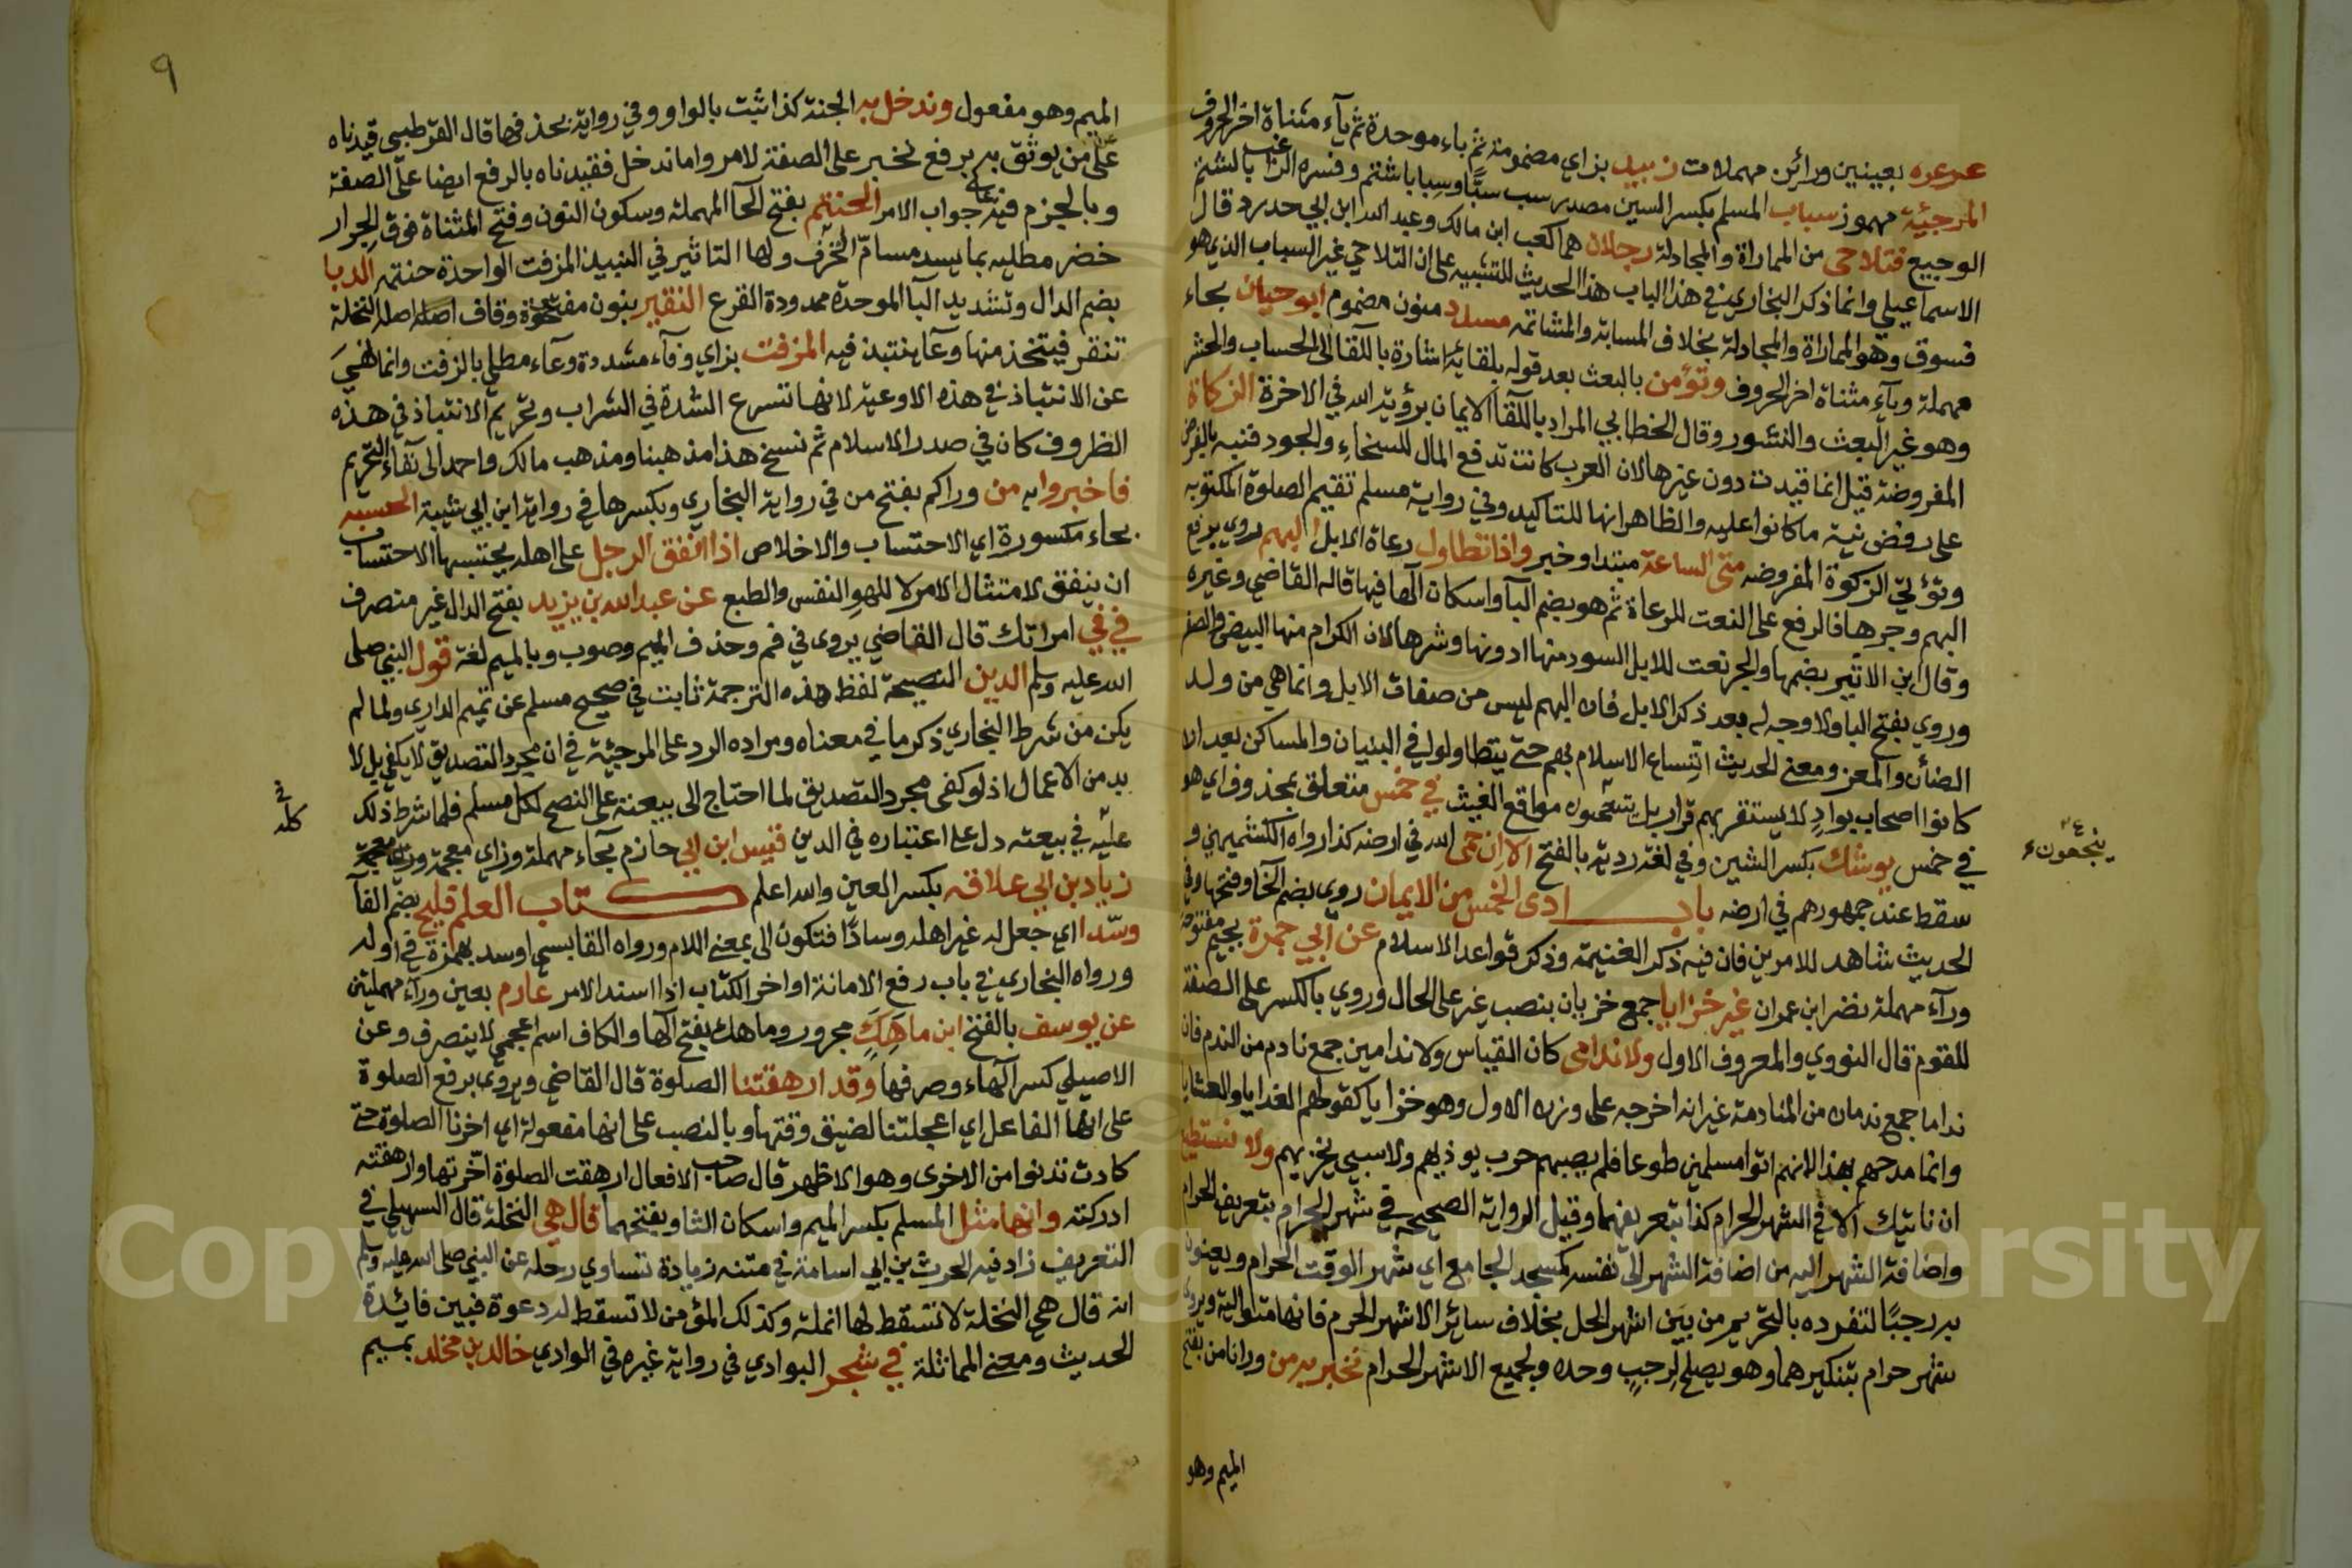 عرعرة بعينين ورائن مهملات زبيد بزاي مضمومة ثم باء موحدة ثم ياء مثناة اخر الحروف
المرجئية مهموز سباب المسلم بكسر السين مصدر سب سبًا وسبابا شتم وفسره الراغب بالشتم
الوجيع فتلاحى من المماراة والمجادلة رجلان هما كعب ابن مالك وعبد الله ابن ابي حدرد قال
الاسماعيلي وانما ذكر البخاري في هذا الباب هذا الحديث للتنبيه على ان التلاحي غير السباب الذي هو
فسوق وهو المماراة والمجادلة بخلاف المسابه والمشاتمه مسدد منون مضموم ابو حيان بحاء
مهملة وياء مثناة اخر الحروف وتؤمن بالبعث بعد قوله بلقائه اشارة باللقا الى الحساب والحشر
وهو غير البعث والنشور وقال الخطابي المراد باللقا الايمان برؤية الله في الاخرة الزكاة
المفروضة قيل انما قيدت دون غيرها لان العرب كانت تدفع المال للسخاء والجود فنبه بالفرض
على رفض نية ما كانوا عليه والظاهر انها للتاكيد وفي رواية مسلم تقيم الصلوة المكتوبه
وتؤتي الزكوة المفروضه متى الساعة مبتدا وخبر واذا تطاول رعاة الابل البهم روي برفع
البهم وجرها فالرفع على النعت للرعاة ثم هو بضم البا واسكان الها فيها قاله القاضي وغيره
وقال ابن الاثير بضمها والجر نعت للابل السود منها ادونها وشرها لان الكرام منها البيض والصفر
وروي بفتح البا ولا وجه له بعد ذكر الابل فان البهم ليس من صفات الابل وانما هي من ولد
الضأن والمعز ومعنى الحديث اتساع الاسلام بهم حتى يتطاولوا في البنيان والمساكن بعد ان
كانوا اصحاب بوادٍ لا يستقر بهم قرار بل ينتجعون مواقع الغيث في خمس متعلق بمحذوف اي هو
في خمس يوشك بكسر الشين وفي لغة ردية بالفتح الا ان حمى الله في ارضه كذا رواه الكشميهني و
سقط عند جمهورهم في ارضه باب ادى الخمس من الايمان روي بضم الخا وفتحها وفي
الحديث شاهد للامرين فان فيه ذكر الغنيمة وذكر قواعد الاسلام عن ابي جمرة بجيم مفتوحة
وراء مهملة نضر ابن عمران غير خزايا جمع خزيان بنصب غير على الحال وروي بالكسر على الصفة
للقوم قال النووي والمعروف الاول ولا ندامى كان القياس ولا نادمين جمع نادم من الندم فان
نداما جمع ندمان من المنادمة غير انه اخرجه على وزن الاول وهو خزايا كقولهم الغدايا والعشايا
وانما مدحهم بهذا لانهم اتوا مسلمين طوعا فلم يصبهم حرب يوذيهم ولا سبي يخزيهم ولا نستطيع
ان ناتيك الا في الشهر الحرام كذا بتعريفهما وقيل الرواية الصحيحة في شهر الحرام بتعريف الحرام
واضافة الشهر اليه من اضافة الشهر الى نفسه كمسجد الجامع اي شهر الوقت الحرام ويعنون
به رجبًا لتفرده بالتحريم من بين اشهر الحل بخلاف سائر الاشهر الحرم فانها متوالية ويروى
شهر حرام بتنكيرهما وهو يصلح لرجب وحده ولجميع الاشهر الحرام نخبر به من ورانا من بفتح
الميم وهو
ينجعون
٩
الميم وهو مفعول وندخل به الجنة كذا ثبت بالواو وفي رواية بحذفها قال القرطبي قيدناه
على من يوثق به برفع نخبر على الصفة لامر واما ندخل فقيدناه بالرفع ايضا على الصفة
وبالجزم فيه على جواب الامر الحنتم بفتح الحا المهملة وسكون النون وفتح المثناة فوق الجرار
خضر مطليه بما يسد مسام الخزف ولها التاثير في النبيذ المزفت الواحدة حنتمه الدبا
بضم الدال وتشديد البا الموحدة ممدودة القرع النقير بنون مفتوحة وقاف اصله النخلة
تنقر فيتخذ منها وعا ينتبذ فيه المزفت بزاي وفاء مشددة وعاء مطلي بالزفت وانما نهي
عن الانتباذ في هذه الاوعية لانها تسرع الشدة في الشراب وتحريم الانتباذ في هذه
الظروف كان في صدر الاسلام ثم نسخ هذا مذهبنا ومذهب مالك واحمد الى بقاء التحريم
فاخبروا به من وراكم بفتح من في رواية البخاري وبكسرها في رواية ابن ابي شيبة الحسبه
بحاء مكسورة اي الاحتساب والاخلاص اذا انفق الرجل على اهله يحتسبها الاحتساب
ان ينفق لامتثال الامر لا للهو النفس والطبع عن عبد الله بن يزيد بفتح الدال غير منصرف
في في امراتك قال القاضي يروى في فم وحذف الميم وصوب وبالميم لغة قول النبي صلى
الله عليه وسلم الدين النصيحة لفظ هذه الترجمة ثابت في صحيح مسلم عن تميم الداري ولما لم
يكن من شرط البخاري ذكر ما في معناه ومراده الرد على المرجئية في ان مجرد التصديق لا يكفي بل لا
بد من الاعمال اذ لو كفى مجرد التصديق لما احتاج الى بيعته على النصح لكل مسلم فلما شرط ذلك
عليه في بيعته دل على اعتباره في الدين قيس ابن ابي حازم بحاء مهملة وزاي معجمة
زياد بن ابي علاقه بكسر العين والله اعلم كتاب العلم فليح بضم الفا
وسد اي جعل له غير اهله وسادًا فتكون الى بمعنى اللام ورواه القابسي اوسد بهمزة في اوله
ورواه البخاري في باب رفع الامانة اواخر الكتاب اذا اسند الامر عارم بعين وراء مهملتين
عن يوسف بالفتح ابن ماهك مجرور وماهك بفتح الها والكاف اسم اعجمي لا ينصرف وعن
الاصيلي كسر الهاء وصرفها وقد ارهقتنا الصلوة قال القاضي ويروى برفع الصلوة
على انها الفاعل اي اعجلتنا لضيق وقتها وبالنصب على انها مفعولة اي اخرنا الصلوة حتى
كادت تدنوا من الاخرى وهو الاظهر قال صاحب الافعال ارهقت الصلوة اخرتها وارهقته
ادركته وانها مثل المسلم بكسر الميم واسكان الثا وبفتحهما قال هي النخلة قال السهيلي في
التعريف زاد فيه الحرث بن ابي اسامة في متنه زيادة تساوي رحلة عن النبي صلى الله عليه وسلم
انه قال هي النخلة لا تسقط لها انملة وكذلك المؤمن لا تسقط له دعوة فبين فائدة
الحديث ومعنى المماثلة في شجر البوادي في رواية غيره في الوادي خالد بن مخلد بميم